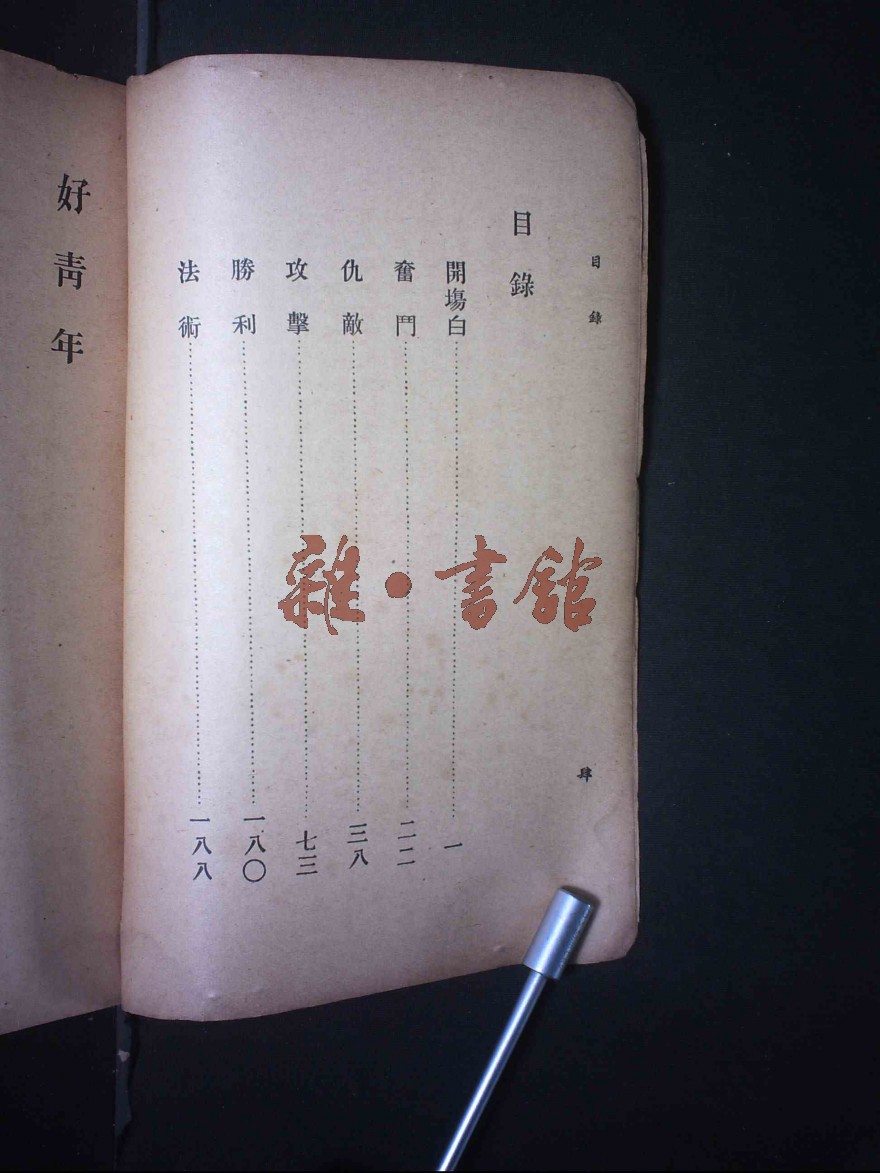 目錄
肆
目錄
開塲白……一
奮鬥……二二
仇敵……三八
攻擊……七三
勝利……一八〇
法術……一八八
好靑年
雜·書館